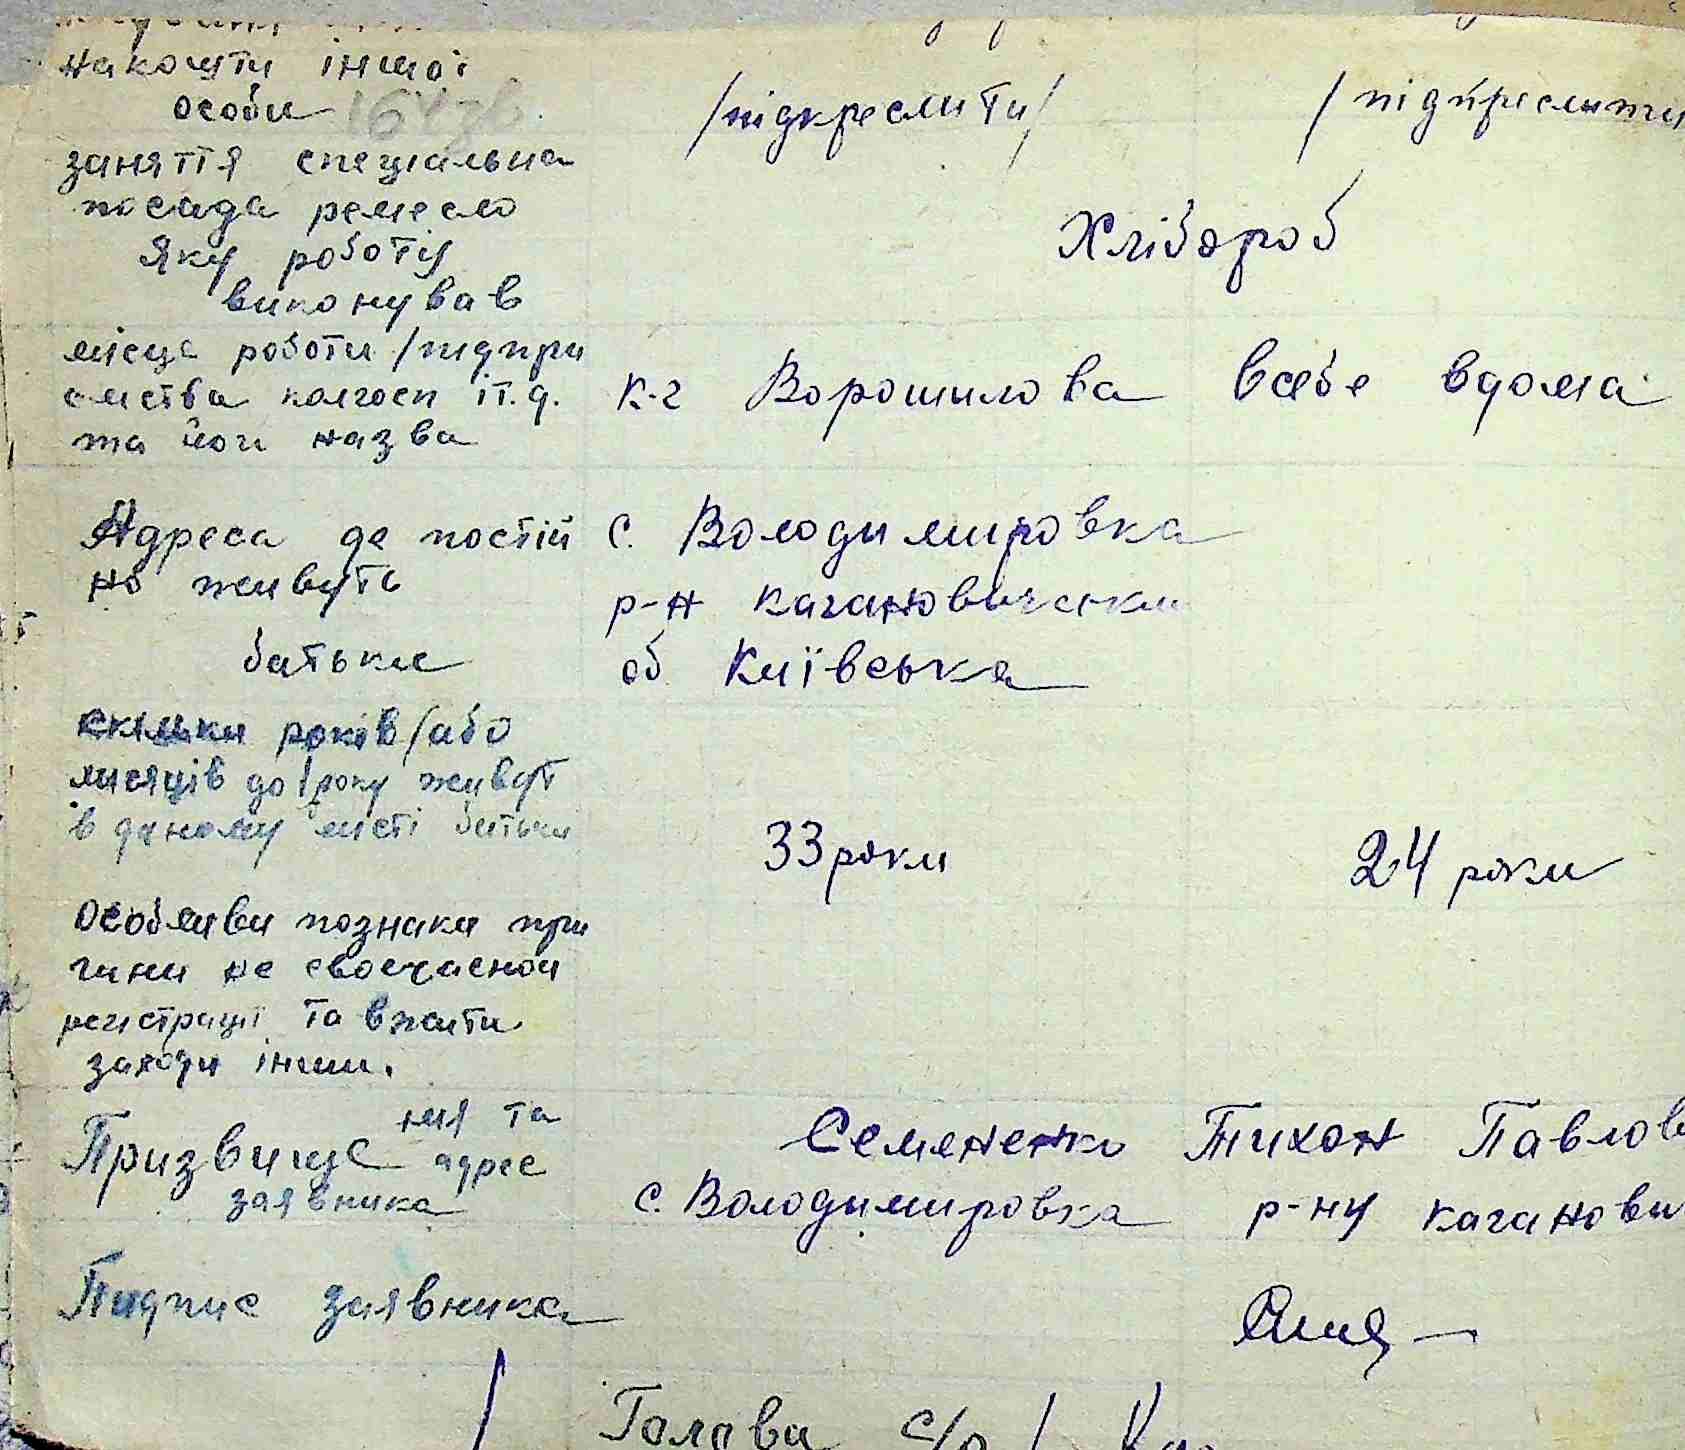 накошти іншої
особи
/підкреслити/ /підкреслити
заняття спеціальна
посада ремесло
Хлібороб
яку роботу
виконував
місце роботи /підпри
ємства колгосп іт.д.
к-г Ворошилова всебе вдома
та його назва
Адреса де постій
но живуть
с. Володимировка
р-н Кагановичськи
батьки
об Київська
скільки років /або
мисяців до 1 року живут
в даному мисті батьки
33 роки 24 роки
Особливи познаки при
чини не своечасной
регістрації та вжити
заходи інши.
Призвище имя та
адрес
заявника
Семененко Тихон Павлов
с. Володимировка р-ну Каганови
Пидпис заявника
Голова с/р